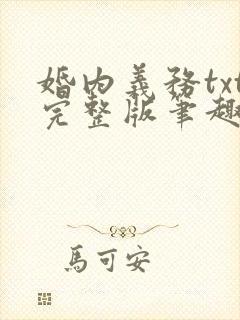 婚內義務txt
完整版筆趣
馬可安